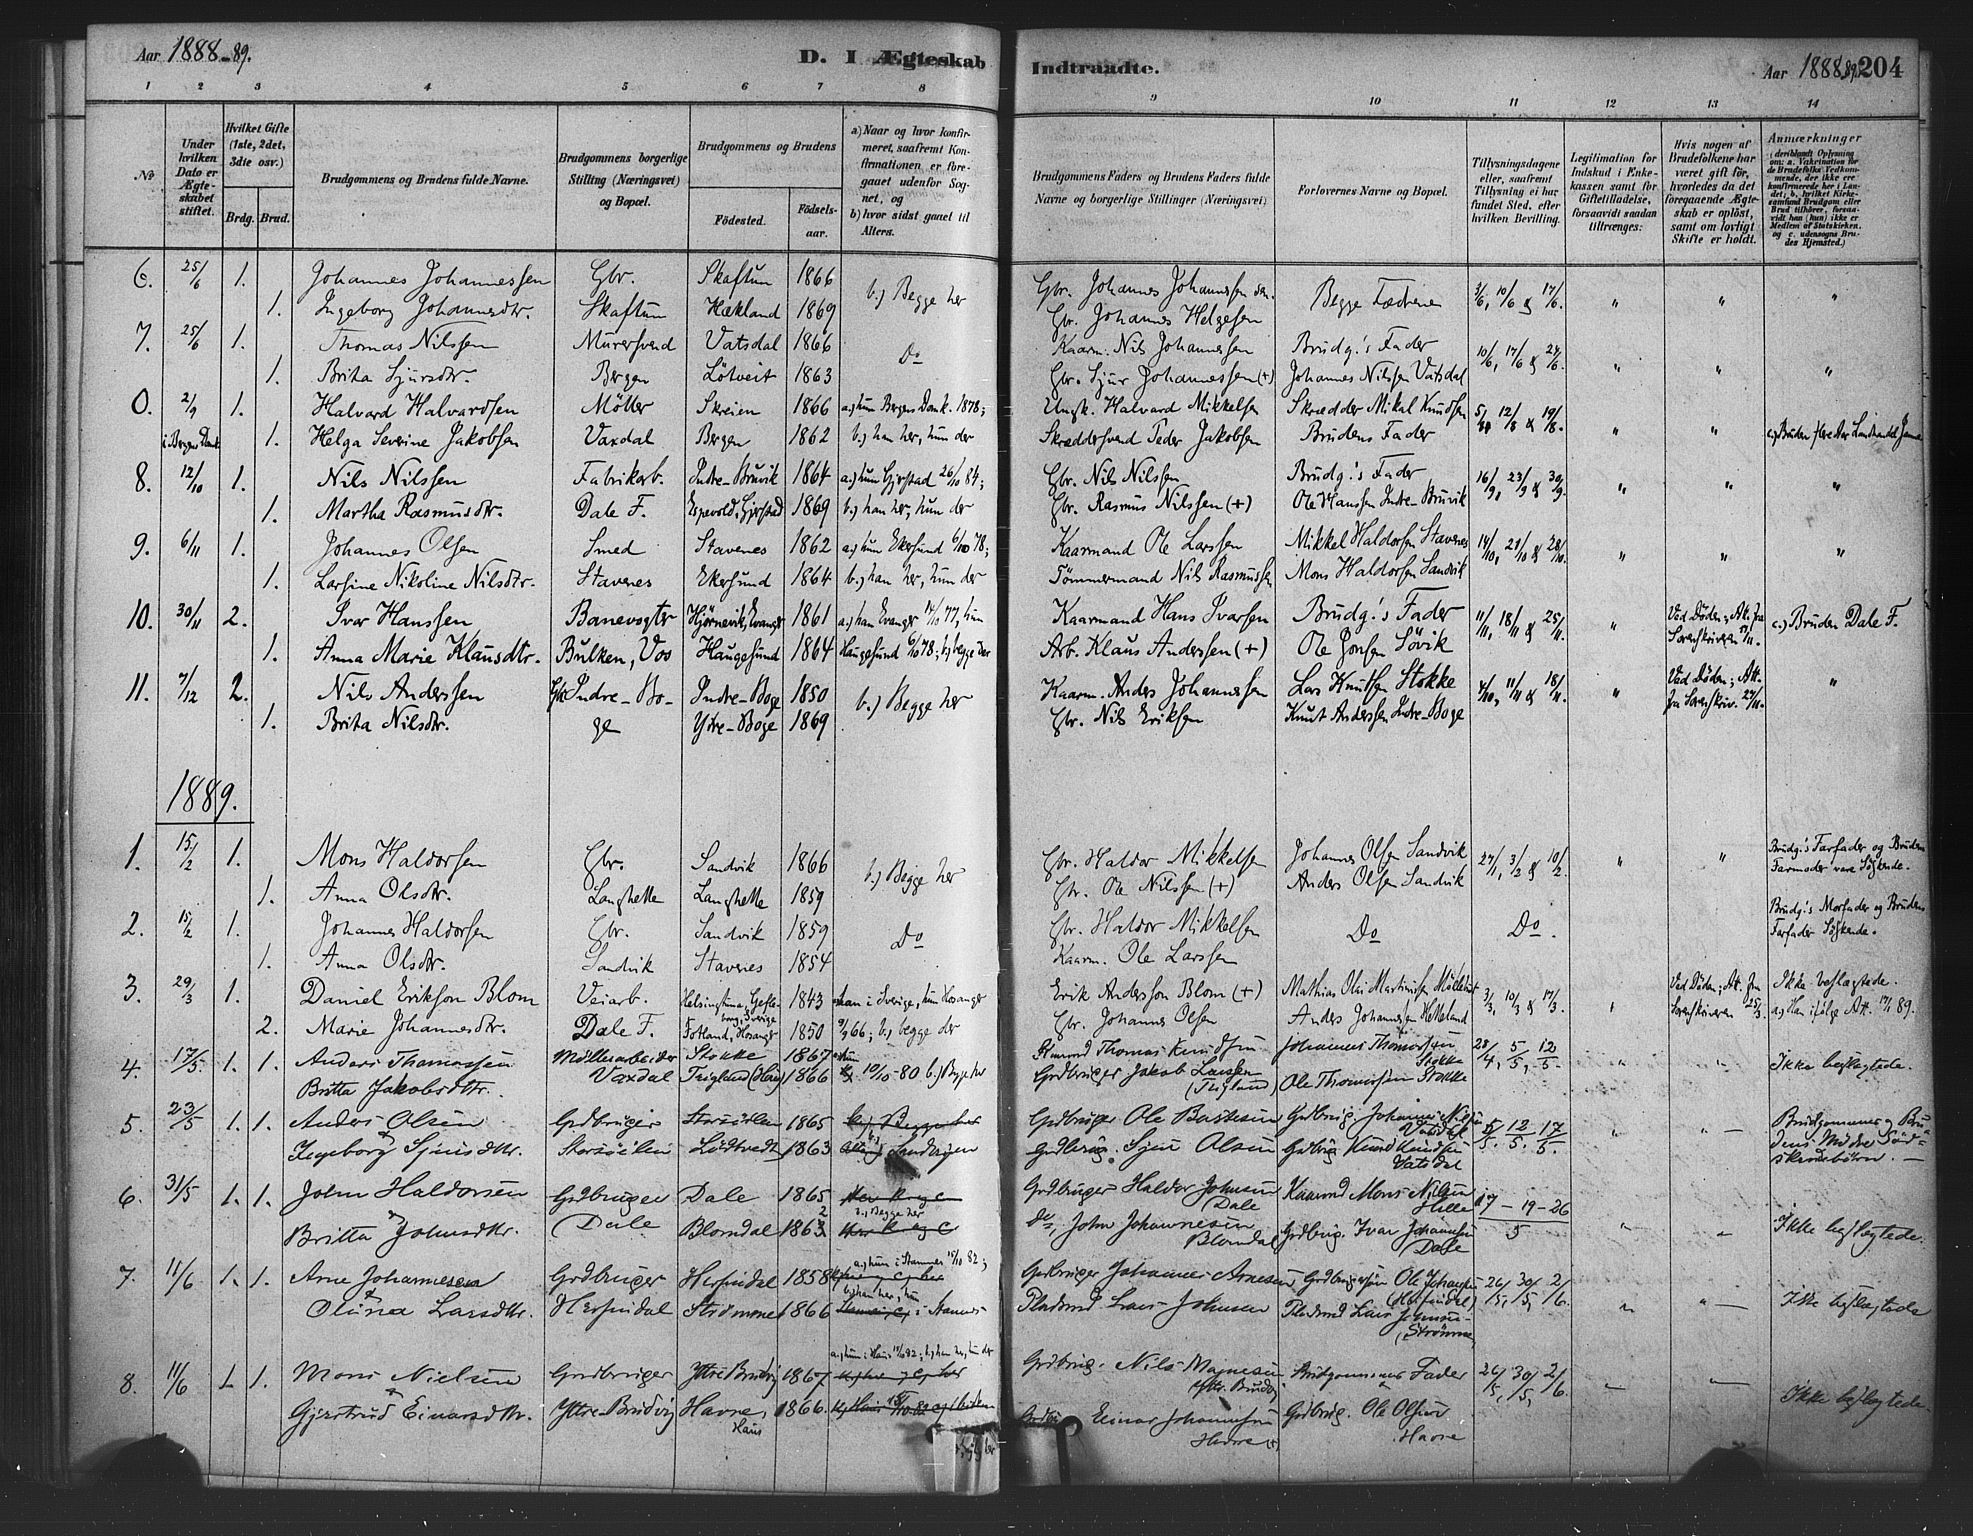 Aar 1888-89.
D. I Ægteskab
Indtraadte.
Aar 1888-89. 204
1 2 3 4 5 6 7 8 9 10 11 12 13 14
No
Under hvilken Dato er Ægteskabet stiftet.
Hvilket Gifte (1ste, 2det, 3die osv.)
Brdg. Brud.
Brudgommens og Brudens fulde Navne.
Brudgommens borgerlige Stilling (Næringsvei) og Bopæl.
Brudgommens og Brudens
Fødested. Fødselsaar.
a) Naar og hvor konfirmeret, saafremt Konfirmationen er foregaaet udenfor Sognet, og
b) hvor sidst gaaet til Alters.
Brudgommens Faders og Brudens Faders fulde Navne og borgerlige Stillinger (Næringsvei)
Forlovernes Navne og Bopæl.
Tillysningsdagene eller, saafremt Tillysning ei har fundet Sted, efter hvilken Bevilling.
Legitimation for Indskud i Enkekassen samt for Giftetilladelse, forsaavidt saadan tiltrænges:
Hvis nogen af Brudefolkene har været gift før, hvorledes da det foregaaende Ægteskab er opløst, samt om lovligt Skifte er holdt.
Anmærkninger (deriblandt Oplysning om: a. Vakcination for de Brudefolks Vedkommende, der ikke ere konfirmerede her i Landet, b. hvilket Kirkesamfund Brudgom eller Brud tilhører, forsaavidt han (hun) ikke er Medlem af Statskirken, og c. udensogns Brudes Hjemsted.)
6. 25/6 1. Johannes Johannessen Gbr. Skaftun 1866 b.) Begge her Gbr. Johannes Johannessen sen. Begge Fædrene 3/6, 10/6 & 17/6. " " "
1. Ingeborg Johannesdtr. Skaftun Hækland 1869 Gbr. Johannes Helgesen
7. 25/6 1. Thomas Nilssen Murersvend Vatsdal 1866 Do Kaarm. Nils Johannessen Brudg.'s Fader 10/6, 17/6 & 24/6. " " "
1. Brita Sjursdtr. Bergen Lötveit 1863 Gbr. Sjur Johannessen (+) Johannes Nilssen Vatsdal
0. 2/9 1. Halvard Halvardsen Möller Skreien 1866 a.) hun Bergens Domk. 1878; Ungk. Halvard Mikkelsen Skrædder Mikal Knudsen 5/8, 12/8 & 19/8.
i Bergens Domk 1. Helga Severine Jakobsen Vaxdal Bergen 1862 b.) han her, hun der Skræddersvend Peder Jakobsen Brudens Fader " " c.) Bruden
8. 12/10 1. Nils Nilssen Fabrikarb. Indre-Bruvik 1864 a.) hun Gjerstad 26/10 84; Gbr. Nils Nilssen Brudg.'s Fader 16/9, 23/9 & 30/9. " " "
1. Martha Rasmusdtr. Dale F. Espevold, Gjerstad 1869 b.) han her, hun der Gbr. Rasmus Nilssen (+) Ole Hanssen Indre-Bruvik
9. 6/11 1. Johannes Olsen Smed Stavenes 1862 a.) hun Ekersund 6/10 78; Kaarmand Ole Larssen Mikkel Haldorsen Stavenes 14/10, 21/10 & 28/10. " " "
1. Larsine Nikoline Nilsdtr. Stavenes Ekersund 1864 b.) han her, hun der Tømmermand Nils Rasmussen Mons Haldorsen Sandvik
10. 30/11 2. Ivar Hanssen Banevogter Hjörnevik, Evanger 1861 a.) han Evanger 14/10 77, hun Kaarmand Hans Ivarsen Brudg.'s Fader 11/11, 18/11 & 25/11. " Ved Döden; Att. fra Sorenskriveren c.) Bruden Dale F.
1. Anna Marie Klausdtr. Bulken, Vos Haugesund 1864 Haugesund 6/10 78; b.) begge der Arb. Klaus Anderssen (+) Ole Jonsen Sövik
11. 7/12 2. Nils Anderssen Gbr. Indre-Bo- Indre-Boge 1850 b.) Begge her Kaarm. Anders Johannessen Lars Knutsen Stokke 4/11, 11/11 & 18/11. " Ved Döden; Att. fra Sorenskriv. 27/11. "
1. Brita Nilsdtr. ge Ytre-Boge 1869 Gbr. Nils Eriksen Knut Anderssen Indre-Boge
1889.
1. 15/2 1. Mons Haldorsen Gbr. Sandvik 1866 b.) Begge her Gbr. Haldor Mikkelsen Johannes Olsen Sandvik 27/1, 3/2 & 10/2. " " Brudg.'s Farfader og Brudens Farmoder vare Söskende.
1. Anna Olsdtr. Langhelle Langhelle 1859 Gbr. Ole Nilssen (+) Anders Olsen Sandvik
2. 15/2 1. Johannes Haldorsen Gbr. Sandvik 1859 Do Gbr. Haldor Mikkelsen Do Do. Brudg.'s Morfader og Brudens Farfader Söskende.
1. Anna Olsdtr. Sandvik Stavenes 1854 Kaarm. Ole Larssen
3. 29/3 1. Daniel Erikson Blom Veiarb. Helsingtuna, Gefleborg, Sverige 1843 han i Sverige, hun Hosanger Erik Andersson Blom (+) Mathias Olai Martinsen 3/3, 10/3 & 17/3. " Ved Döden; Att. fra Sorenskriveren 25/3. Ikke beslægtede.
2. Marie Johannesdtr. Dale F. Fotland, Hosanger 1850 66; b.) begge der Gbr. Johannes Olsen Anders Johannessen Helleland a.) Han ifölge Att. 89.
4. 17/5 1. 1. Anders Thomassen Møllerarbeider Stokke 1867 Thomas Knudsen Johannes Thomassen Stokke 28/4, 5/5, 12/5. " " Ikke beslægtede.
Britta Jakobsdtr. Vaxdal 1866 10/10-80 b.) Begge her Grdbruger Jakob Larssen Ole Thomassen Stokke
5. 23/5 1. 1. Anders Olsen Grdbruger 1865 Grdbruger Ole Grdbrug. Johannes Nilsen Vatsdal 5/5. 12/5. 17/5. " Brudgommens og Brudens Mødre Sødskendebørn.
Ingeborg Sjursdtr. 1863 Sjur Olsen Grdbrug. Knud Knudsen Vatsdal
6. 31/5 1. 1. John Haldorsen Grdbruger Dale 1865 b., Begge her Grdbruger Haldor Johnsen Dale Kaarmd Mons Nielsen Hille 17 - 19 - 26 / 5 Ikke beslægtede.
Britta Johnsdtr. Dale Blomdal 1863 do, John Johannesen Blomdal Grdbrug. Ivar Johannesen Dale
7. 11/6 1. 1. Arne Johannesen Grdbruger Herfindal 1858 a., hun i Stamnes 15/10 82; Grdbruger Johannes Arnesen Ole Johannesen (Herfindal) 26/5, 30/5, 2/6. " " Ikke beslægtede
Oluna Larsdtr. Herfindal Strømme 1866 b., han her, hun i Stamnes Pladsmd Lars Johnsen Pladsmd Lars Johnsen (Strömme)
8. 11/6 1. 1. Mons Nielsen Grdbruger Ytre Bruvig 1867 a., hun i Haus 82; b., han her, hun der Grdbrug. Nils Magnesen Ytre Bruvig Brudgommens Fader 26/5, 30/5, 2/6. " " Ikke beslægtede.
Gjertrud Einarsdtr. Ytre-Bruvig Havre, Haus 1866. Einar Johannesen Havre Grdbrug. Ole Olsen Havre